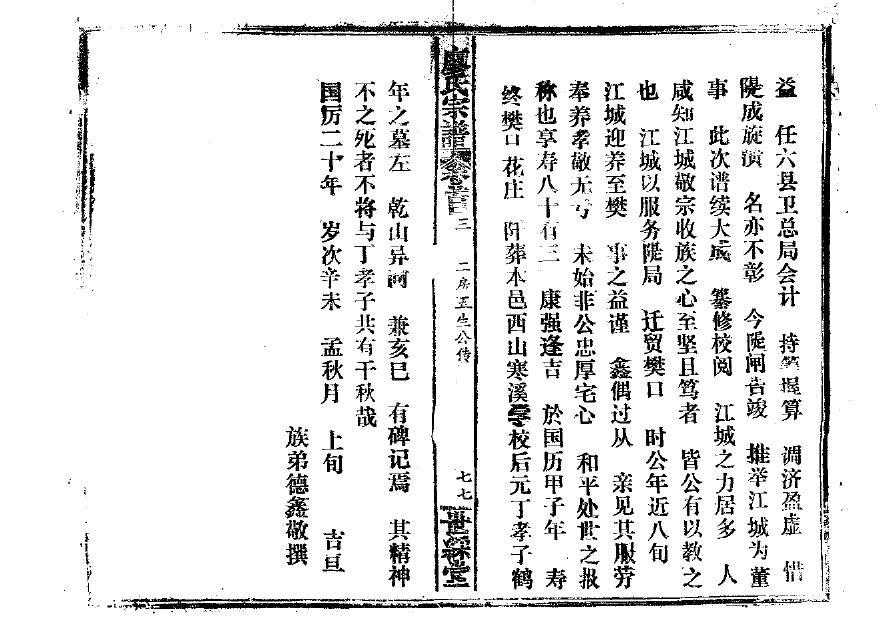 益 任六县卫总局会计 持筹握算 调济盈虚 惜
隄成旋溃 名亦不彰 今隄闸告竣 推举江城为董
事 此次谱续大成 纂修校阅 江城之力居多 人
咸知江城敬宗收族之心至坚且笃者 皆公有以教之
也 江城以服务隄局 迁贸樊口 时公年近八旬
江城迎养至樊 事之益谨 鑫偶过从 亲见其服劳
奉养孝敬无亏 未始非公忠厚宅心 和平处世之报
称也享寿八十有三 康强逢吉 於国历甲子年 寿
终樊口花庄 葬本邑西山寒溪学校后元丁孝子鹤
廖氏宗谱 卷首 三 二房五生公传 七七 世綵堂
年之墓左 乾山巽向 兼亥巳 有碑记焉 其精神
不之死者不将与丁孝子共有千秋哉
国历二十年 岁次辛未 孟秋月 上旬 吉旦
族弟德鑫敬撰